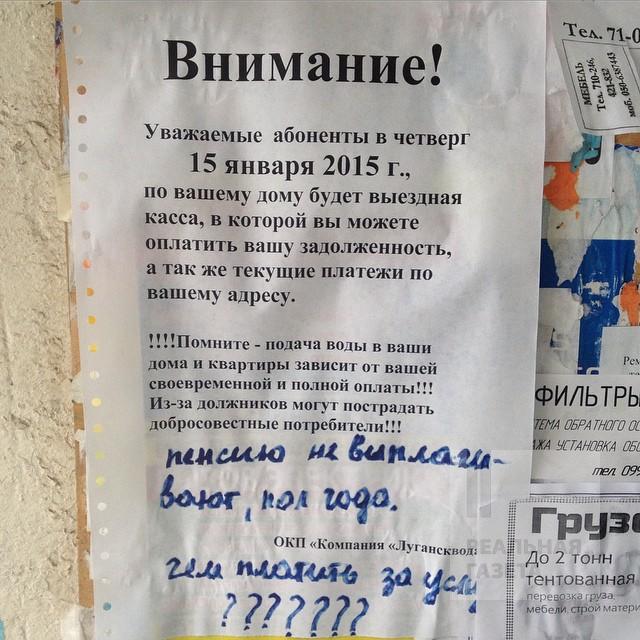 Внимание!
Уважаемые абоненты в четверг
15 января 2015 г.,
по вашему дому будет выездная
касса, в которой вы можете
оплатить вашу задолженность,
а так же текущие платежи по
вашему адресу.
!!!!Помните - подача воды в ваши
дома и квартиры зависит от вашей
своевременной и полной оплаты!!!
Из-за должников могут пострадать
добросовестные потребители!!!
пенсию не выплачи-
вают, пол года.
ОКП «Компания «Лугансквод
чем платить за услу
???????
Тел. 71-0
МЕБЕЛЬ
Тел. 710-246,
421-832
моб. 050-6387443
Рем
ФИЛЬТРЫ
ТЕМА ОБРАТНОГО ОС
ЖА УСТАНОВКА ОБС
тел. 099
Грузо
До 2 тонн
тентованная
перевозка груза,
мебели, строй матери
РЕАЛЬНАЯ
ГАЗЕТ